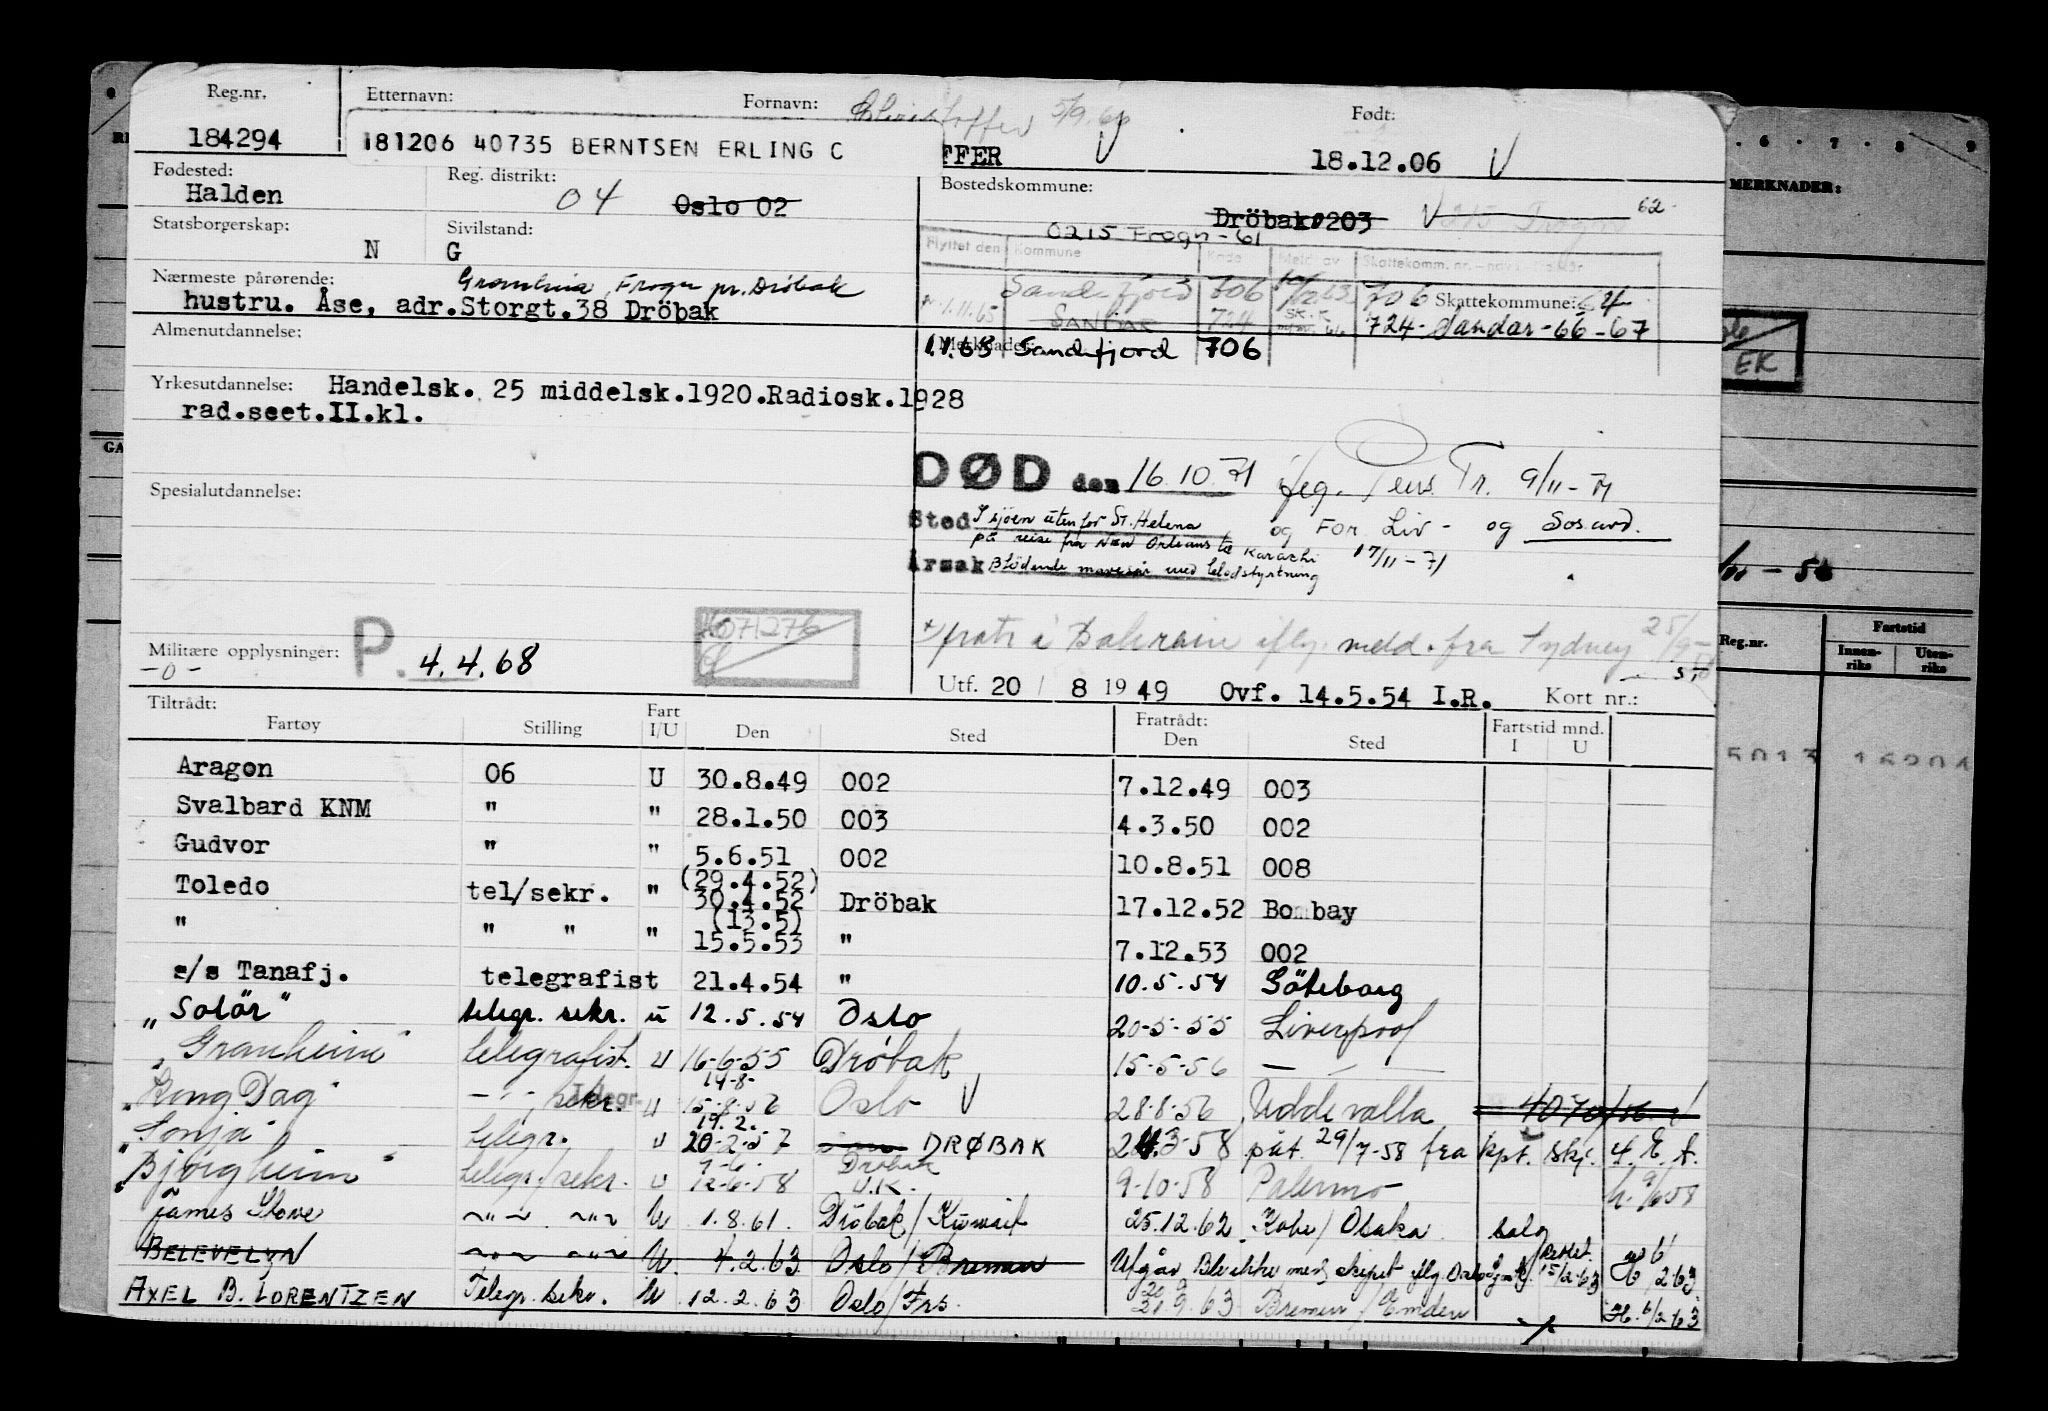 Reg.nr. Etternavn: Fornavn: 5/9.66 Født:
184294 181206 40735 BERNTSEN ERLING C FFER V 18.12.06 V
Fødested: Reg. distrikt: Bostedskommune:
Halden 04 Oslo 02 Dröbak 0203 V 215 Frogn 62
Statsborgerskap: Sivilstand: 0215 Frogn - 61
N G
Flyttet den Kommune Kode Meld av Skattekomm. nr.
Nærmeste pårørende: Granheim, Frogn pr. Dröbak
hustru. Åse, adr.Storgt.38 Dröbak
Sandefjord 706 706 Skattekommune: 64
1.11.65 SANDAR 724 SK.K 724 - Sandar - 66 - 67
Almenutdannelse: Merknader:
1.1.68 Sandefjord 706
Yrkesutdannelse: Handelsk. 25 middelsk.1920.Radiosk.1928
rad.seet.II.kl.
DØD den 16.10.71 Pens. Tr. 9/11-71
Spesialutdannelse:
Sted I sjöen utenfor St. Helena og For Liv- og Sos.avd.
på reise fra New Orleans til Karachi 17/11-71
Årsak Blödende mavesår med blodstyrtning
fratr i Bahrain iflg. meld. fra Sydney 25/9-
Militære opplysninger: P. 4.4.68
-0-
Utf. 20 / 8 19 49 Ovf. 14.5.54 I.R. Kort nr.:
Tiltrådt: Fratrådt:
Fartøy Stilling Fart I/U Den Sted Den Sted Fartstid mnd. I U
Aragon 06 U 30.8.49 002 7.12.49 003
Svalbard KNM " " 28.1.50 003 4.3.50 002
Gudvor " " 5.6.51 002 10.8.51 008
(29.4.52)
Toledo tel/sekr. " 30.4.52 Dröbak 17.12.52 Bombay
(13.5)
" " " " 15.5.53 " 7.12.53 002
s/s Tanafj. telegrafist 21.4.54 " 10.5.54 Göteborg
"Solör" telegr. sekr. u 12.5.54 Oslo 20-5-55 Liverpool
"Granheim" telegrafist. u 16-6-55 Dröbak 15-5-56 — — —
14-8-
"Kong Dag" - " - sekr. u 15-8-56 Oslo V 28-8-56 Uddevalla
19.2.
"Sonja" telegr. u 20-2-57 DRØBAK 24-3-58 påt. 29/7-58 fra kpt. skj. 4. E. A.
9-6- Dröbak
"Bjørgheim" telegr./sekr. u 12-6-58 U.K. 9-10-58 Palermo h. 9/6 58
James Stove ~"~ ~"~ U 1.8.61. Dröbak/Kuwait 25.12.62 Kobe/Osaka salg
BELEVELYN ~"~ ~"~ U. 4.2.63 Oslo/Bremen Utgår Ble ikke med skipet iflg. Oslo 15/2-63 2.63
20.9
AXEL B. LORENTZEN Telegr. sekr. U 12.2.63 Oslo/Frs. 21.9.63 Bremen/Emden H. 6/2-63
6 . 7 . 8 9
MERKNADER:
EK
Reg.nr. Fartstid
Innenriks Utenriks